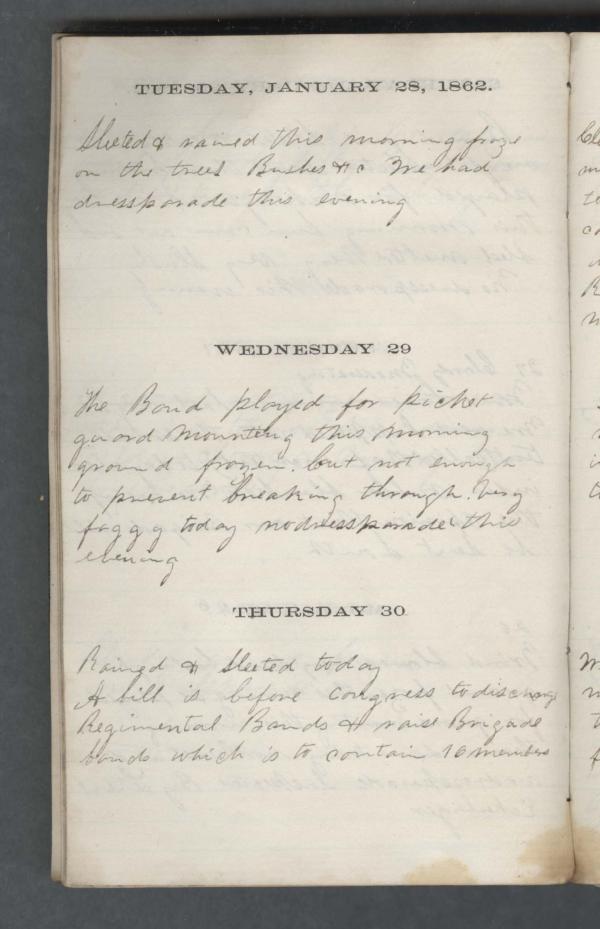 TUESDAY, JANUARY 28, 1862.
Sleeted & rained this morning froze
on the trees Bushes &c We had
dressparade this evening
WEDNESDAY 29
The Band played for picket
guard Mounting this Morning
ground frozen. but not enough
to prevent breaking through. Very
foggy today nodressparade this
evening
THURSDAY 30
Rained & Sleeted today
A bill is before Congress to discharge
Regimental Bands & raise Brigade
bands which is to contain 16 members